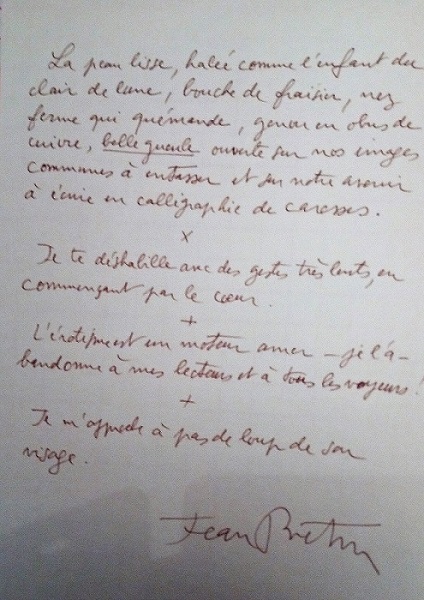 La peau lisse, halée comme l'enfant du
clair de lune, bouche de fraisier, nez
ferme qui quémande, genou en obus de
cuivre, belle gueule ouverte sur nos images
communes à entasser et sur notre avenir
à écrire en calligraphie de caresses.
x
Je te déshabille avec des gestes très lents, en
commençant par le cœur.
+
L'érotisme est un moteur amer – je l'a-
bandonne à mes lecteurs et à tous les voyeurs !
+
Je m'approche à pas de loup de son
visage.
Jean Breton